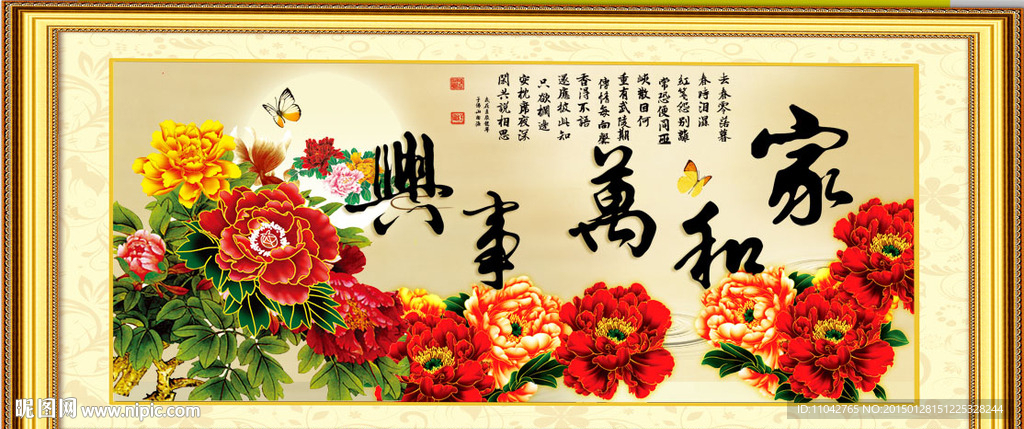 家和萬事興
去春零落暮
春時泪濕
紅箋怨别離
常恐便同巫
峽散因何
重有武陵期
傳情每向馨
香得不語
還應彼此知
只欲欄邊
安枕席夜深
閑共說相思
昵图网 www.nipic.com
ID:11042765 NO:20150128151225328244